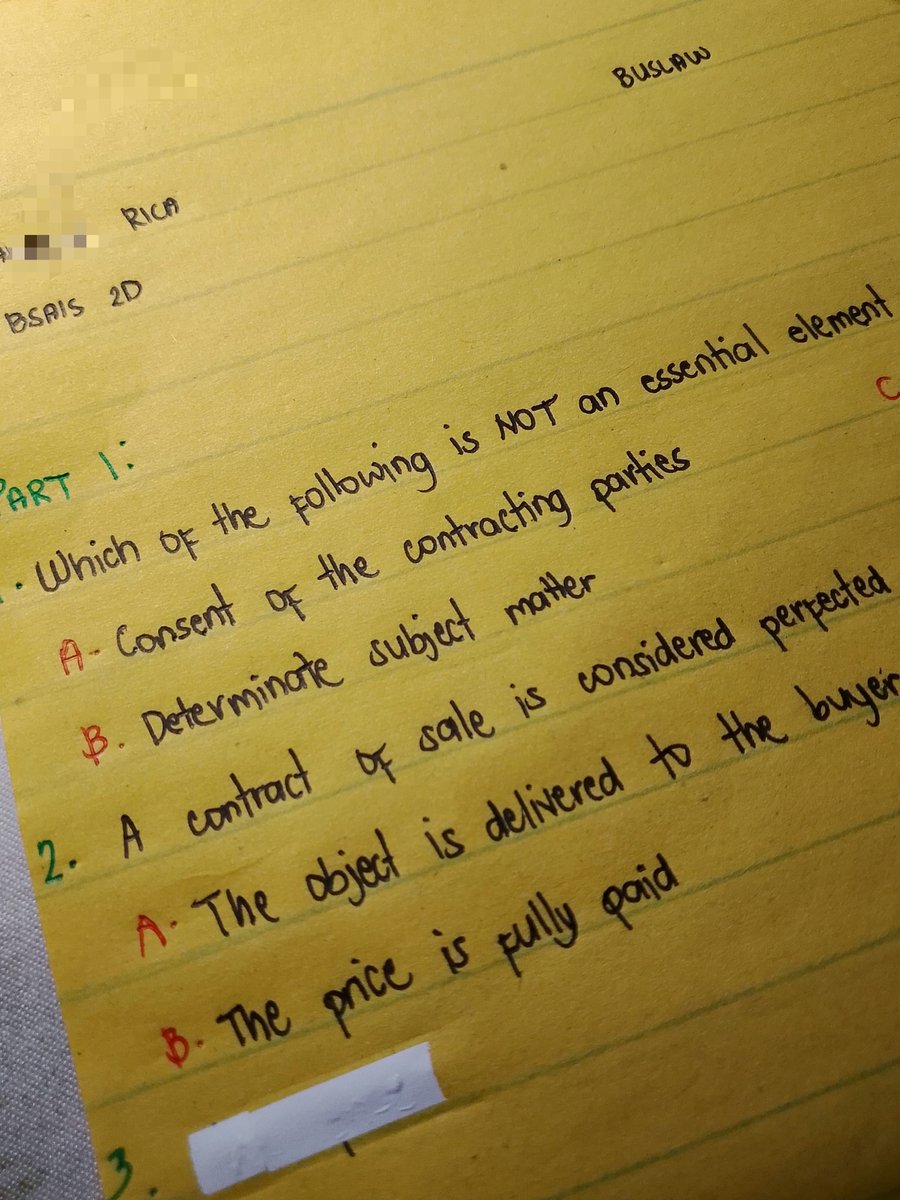 BUSLAW
RICA
BSAIS 2D
PART 1:
. Which of the following is NOT an essential element
C
A. Consent of the contracting parties
B. Determinate subject matter
2. A contract of sale is considered perfected
A. The object is delivered to the buyer
B. The price is fully paid
3.